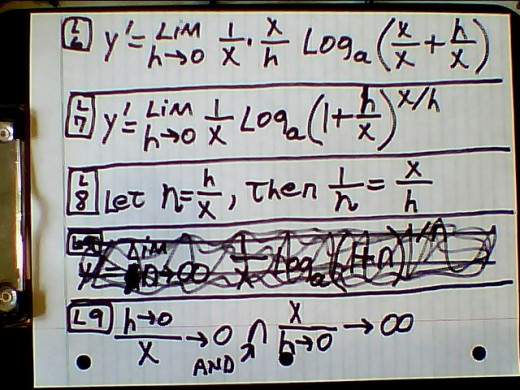 L6 y' = Lim h→0 1/x · x/h Log_a (x/x + h/x)
L7 y' = Lim h→0 1/x Log_a (1 + h/x)^x/h
L8 Let n = h/x, Then 1/n = x/h
L9 h→0/x → 0 AND x/h→0 → ∞